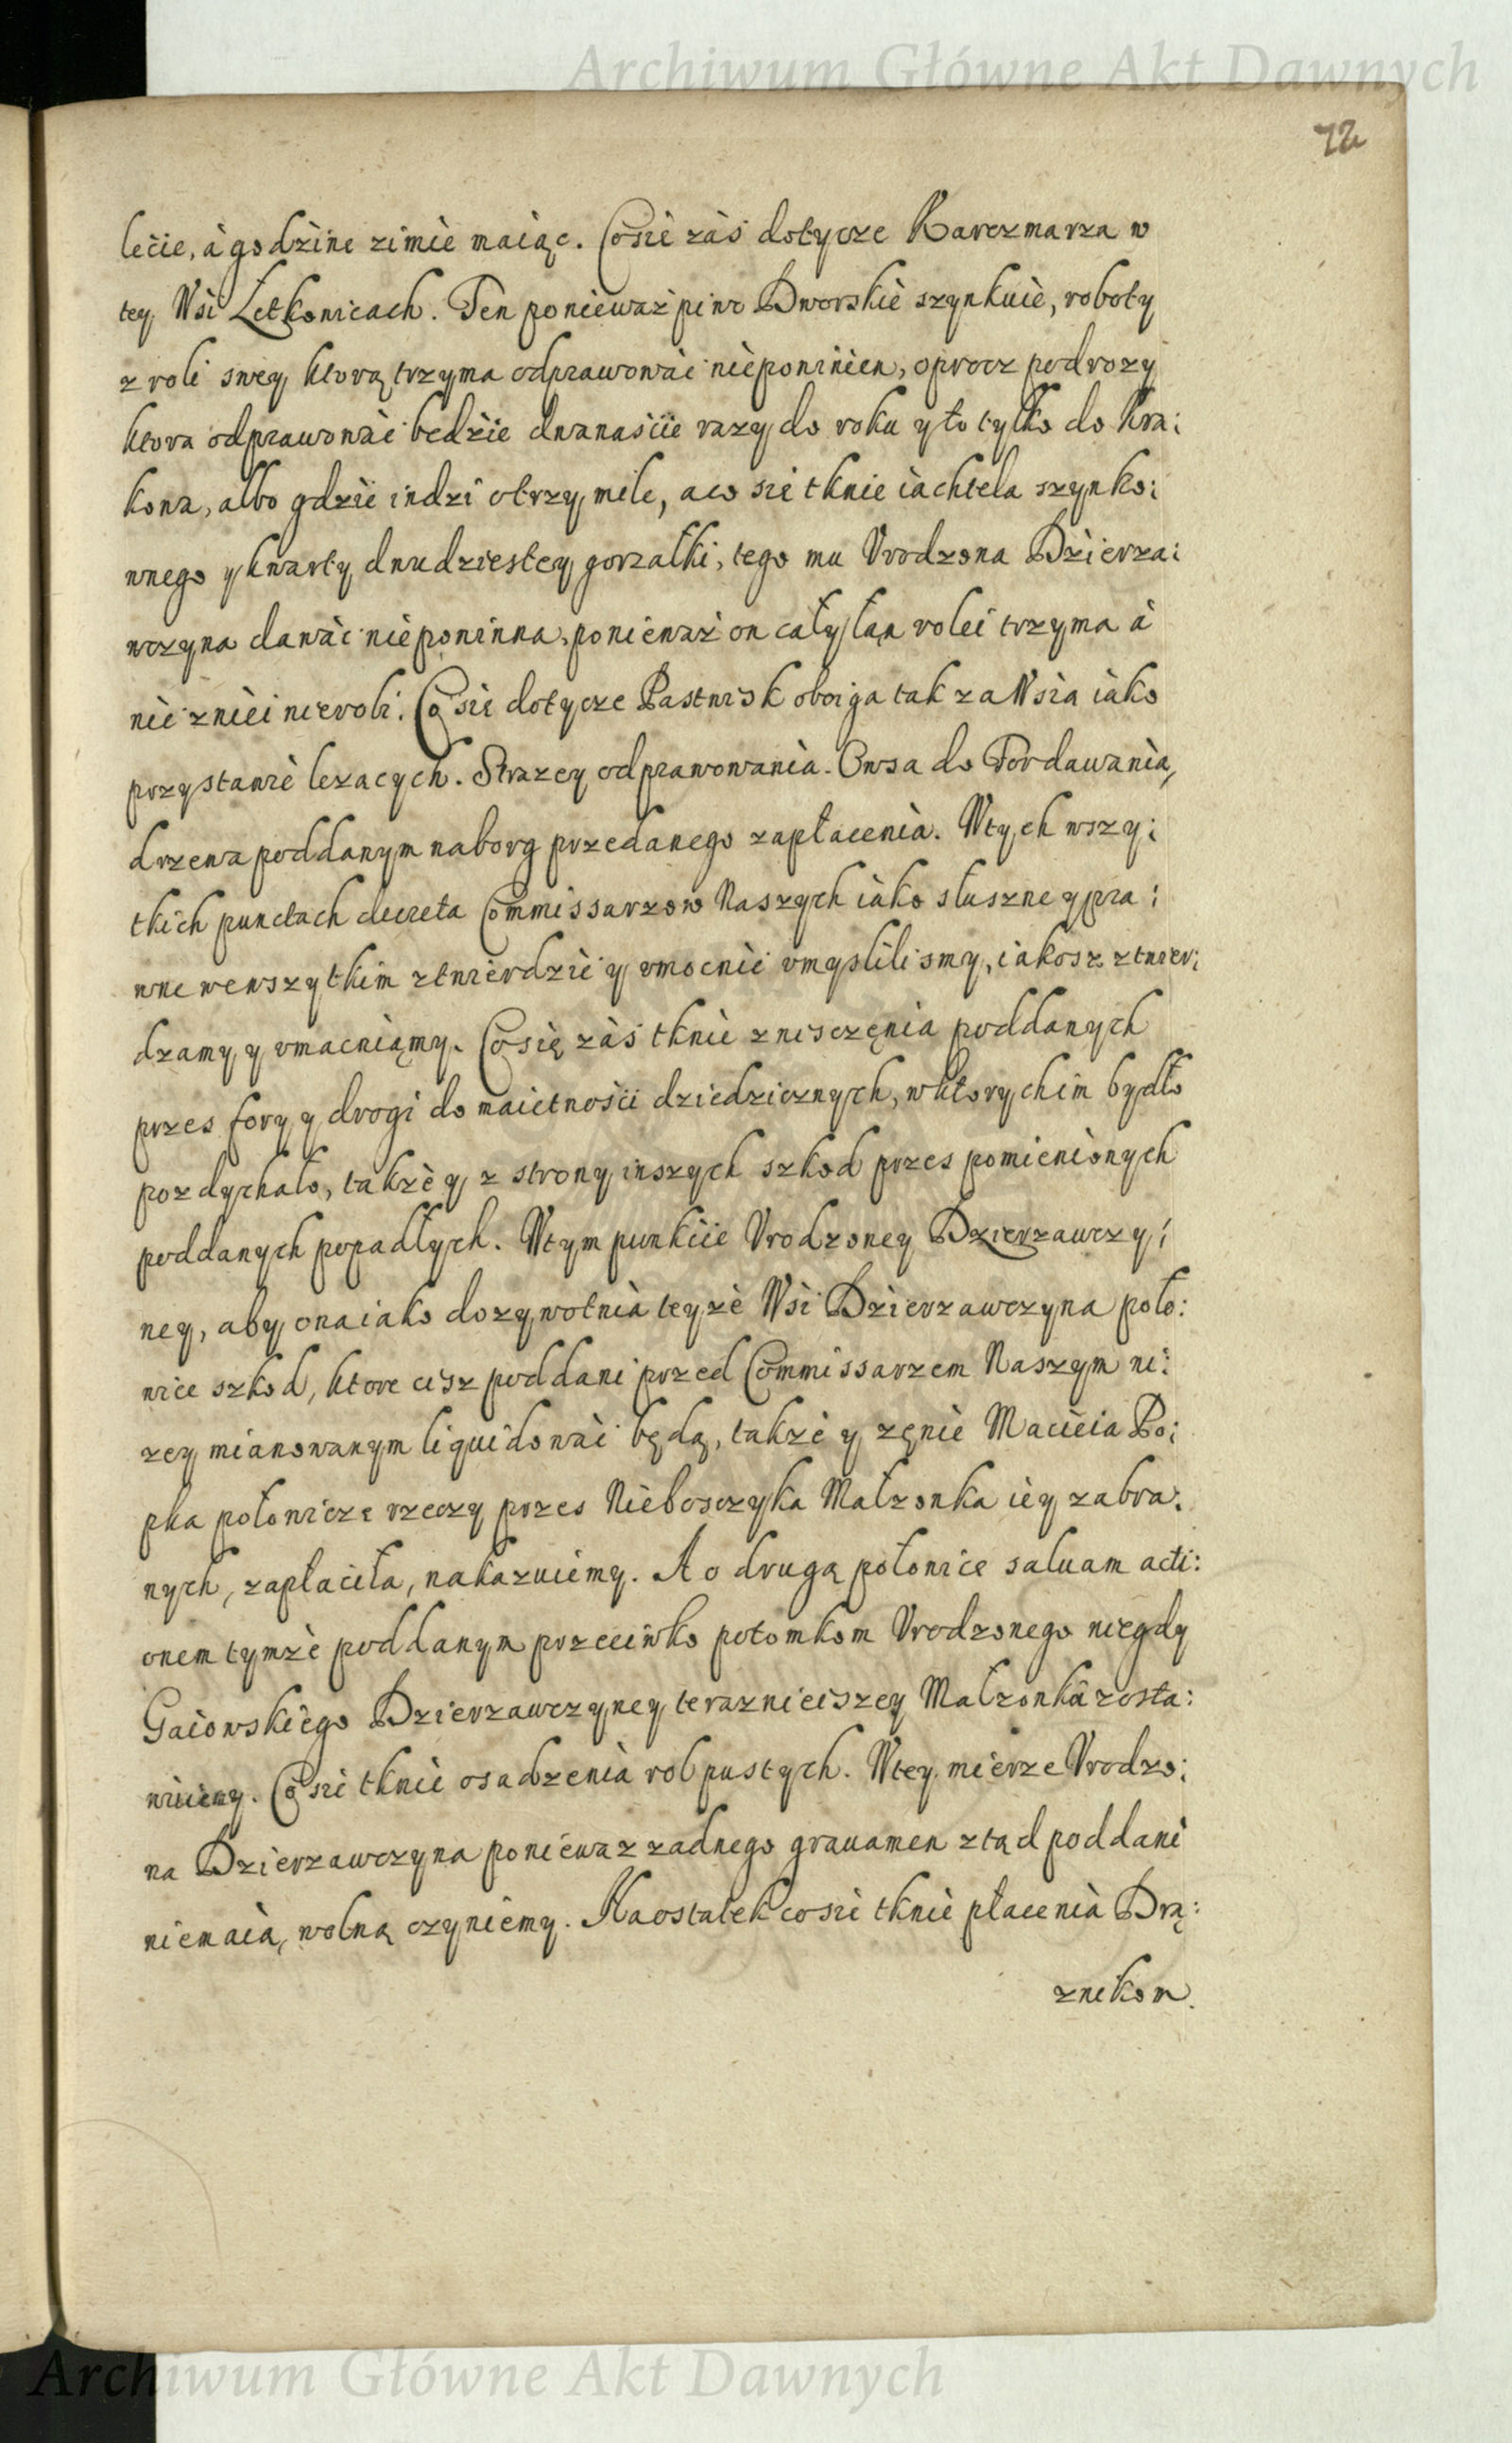 Archiwum Główne Akt Dawnych
72
lećie, à godżine zimie maiąc. Cosie zàś dotycze Karczmarza w
tey Wsi Łetkowicach. Ten ponieważ piwo Dworskie szynkuie, roboty
z roli swey, ktorą trzyma odprawowàć niepowinien, oprocz podrozy
ktora odprawowàć będzie dwanaście razy do roku y to tylko do Kra:
kowa, albo gdzie indzi o trzy mile, a co sie tknie iachtela szynko:
wnego y kwarty dwudziestey gorzałki, tego mu Vrodzona Dzierza:
wczyna dawàć niepowinna, ponieważ on cały łan rolei trzyma à
nic z niei nierobi. Co sie dotycze Pastwisk oboiga tak za Wsią iako
przy stawie lezacych. Strazey odprawowania. Owsa do For dawania,
drzewa poddanym na borg przedanego zapłacenia. W tych wszy:
tkich punctach decreta Commissarzow Naszych iako słuszne y pra:
wne wewszytkim ztwierdzić y vmocnić vmyslilismy, iakosz ztwier:
dzamy y vmacniąmy. Co się zàś tknie znisczęnia poddanych
przes fory y drogi do maietności dziedzicznych, w ktorych im bydło
pozdychało, także y z strony inszych szkod przes pomienionych
poddanych popadłych. W tym punkcie Vrodzoney Dzierzawczy:
ney, aby ona iako dozywotnia teyże Wsi Dzierzawczyna poło:
wice szkod, ktore cisz poddani przed Commissarzem Naszym ni:
zey mianowanym liquidowàć będą, także y zęnie Macieia Po:
pka połowicze rzeczy przes Nieboszczyka Małzonka iey zabra:
nych, zapłaciła, nakazuiemy. A o drugą połowice saluam acti:
onem tymże poddanym przeciwko potomkom Vrodzonego niegdy
Gaiowskiego Dzierzawczyney teraznieiszey Małzonka zosta:
wuiemy. Co sie tknie osadzenia rol pustych. W tey mierze Vrodzo:
na Dzierzawczyna poniewaz zadnego grauamen ztąd poddani
niemaią, wolną czyniemy. Na ostatek co sie tknie płacenia Drą:
znikom.
Archiwum Główne Akt Dawnych